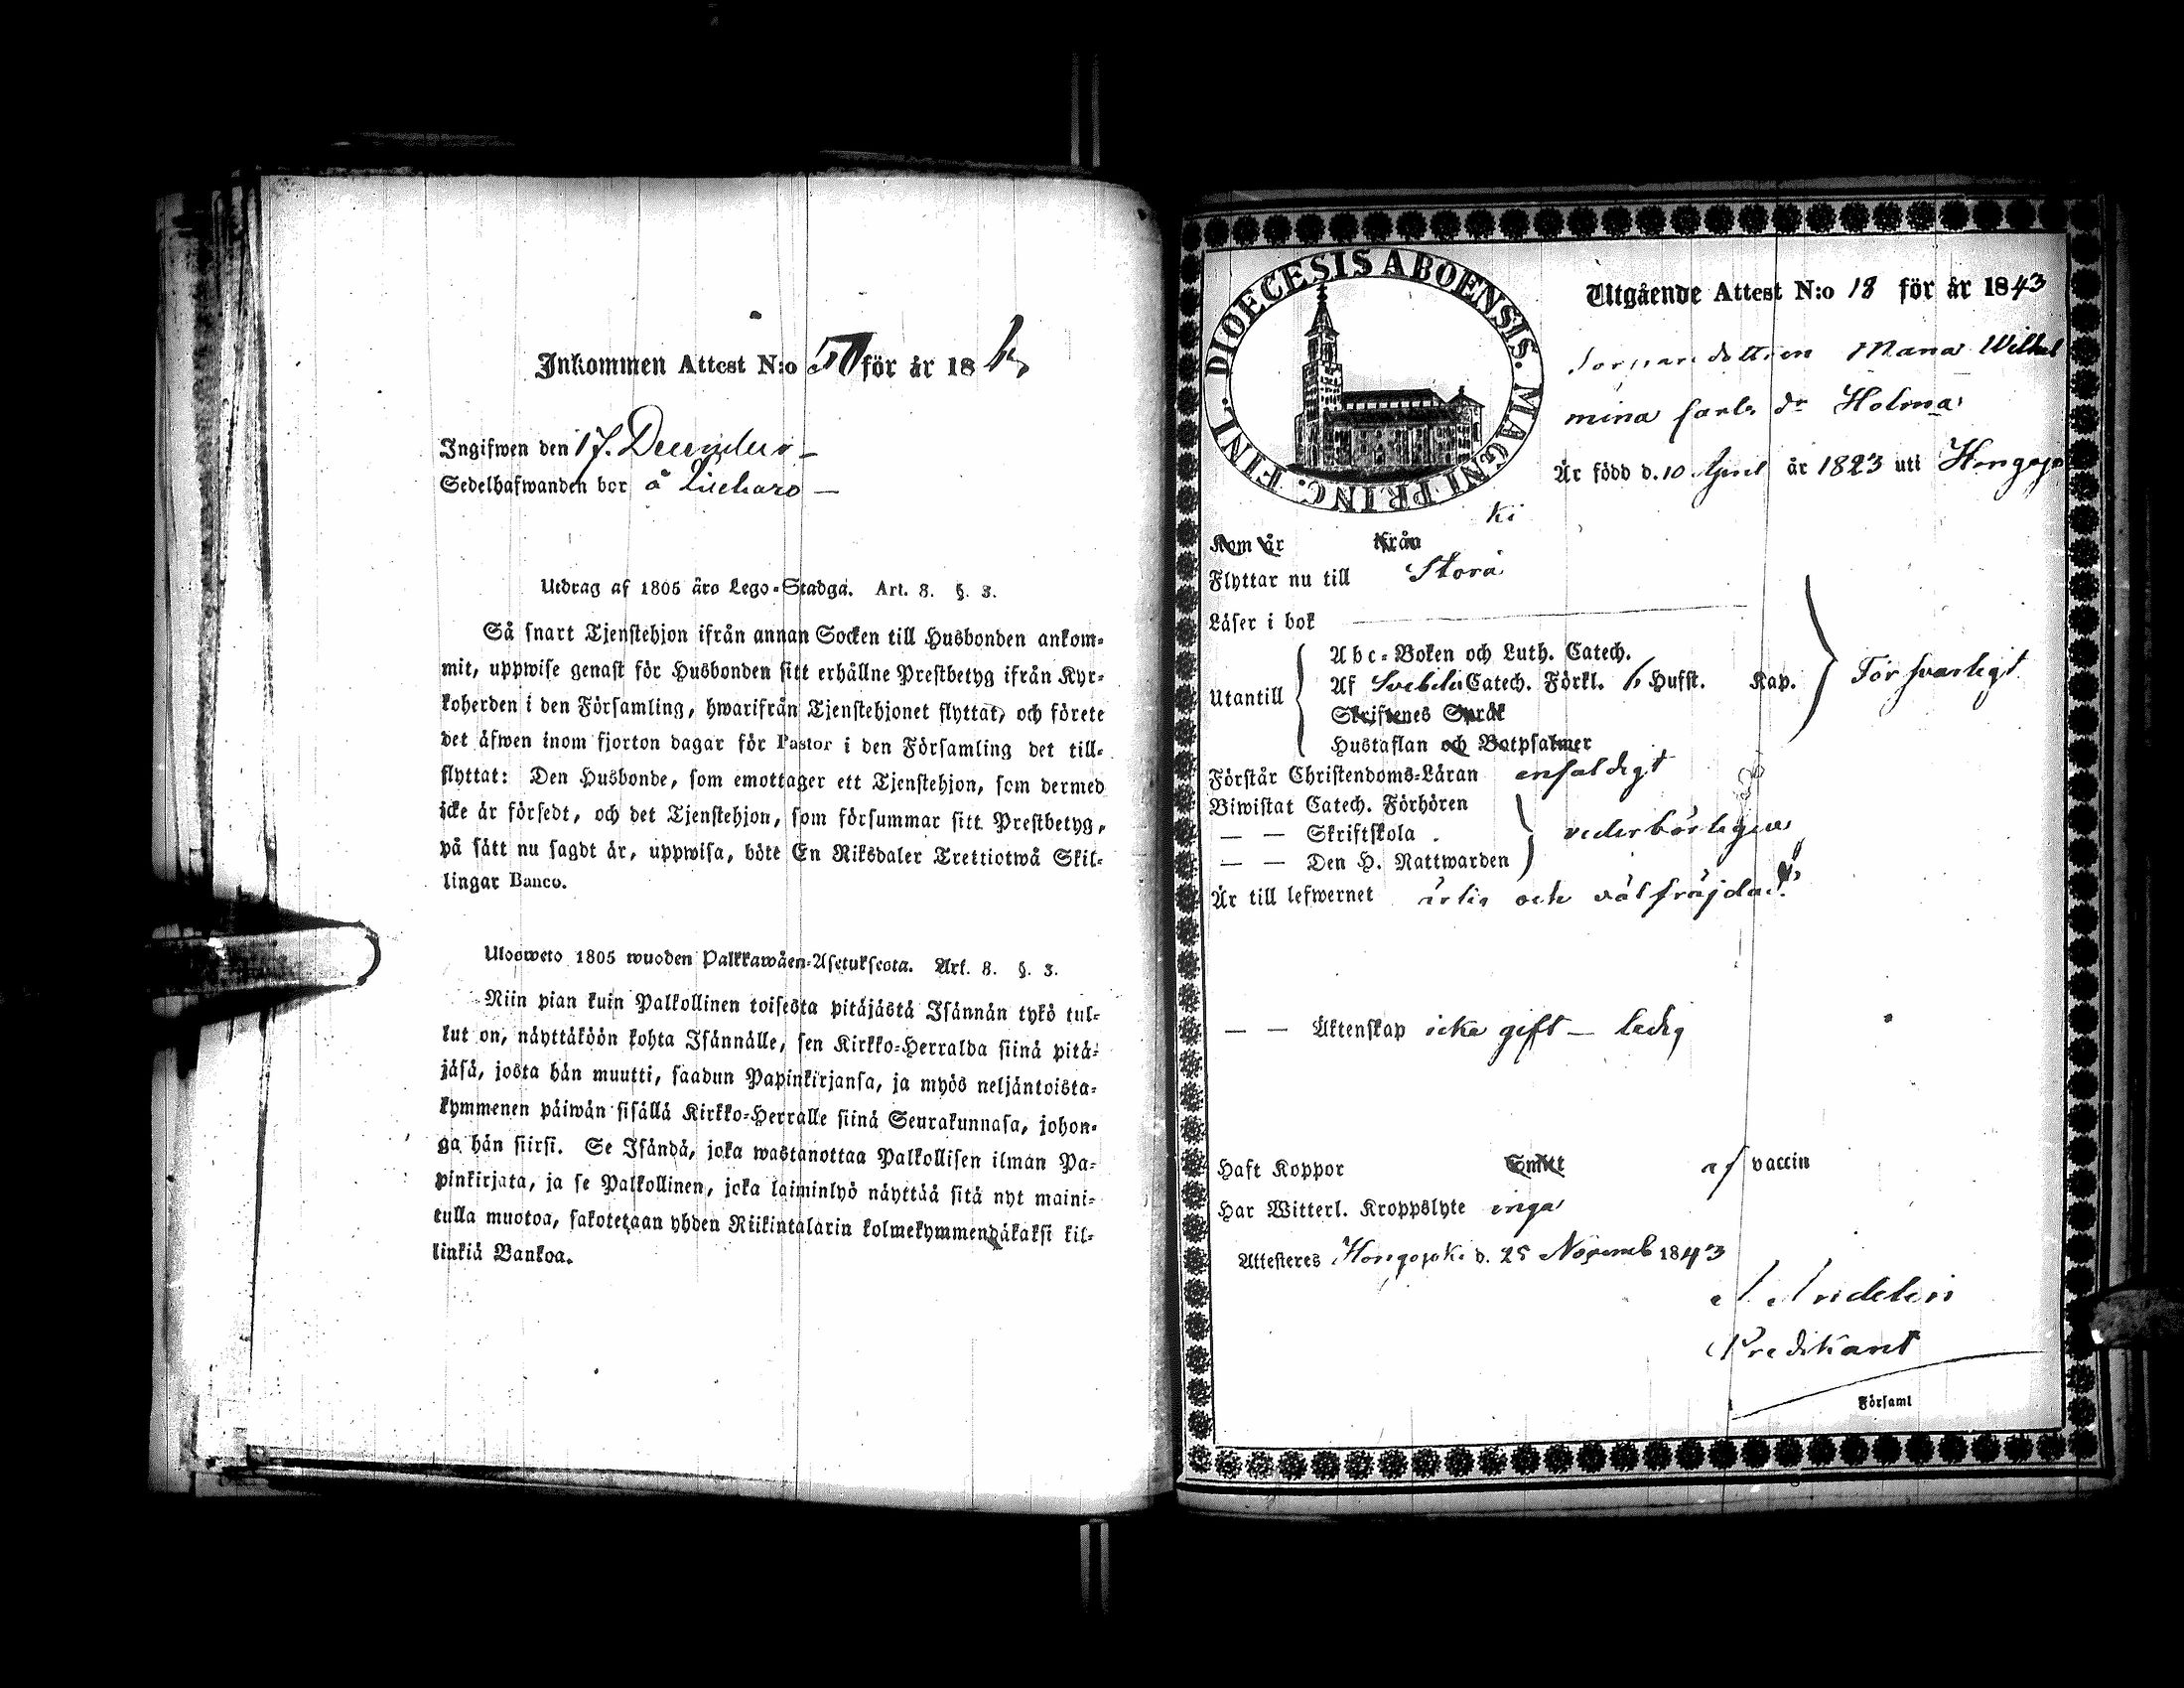 Inkommen Attest N:o för år 18
Ingifwen den 17. December
Sedelhafwanden bor å
Utdrag af 1805 års Lego-Stadga. Art. 8. §. 3.
Så snart Tjenstehjon ifrån annan Socken till Husbonden ankom-
mit, uppwise genast för Husbonden sitt erhållne Prestbetyg ifrån Kyr-
koherden i den Församling, hwarifrån Tjenstehjonet flyttat, och förete
det äfwen inom fjorton dagar för Pastor i den Församling det till-
flyttat: Den Husbonde, som emottager ett Tjenstehjon, som dermed
icke är försedt, och det Tjenstehjon, som försummar sitt Prestbetyg,
på sätt nu sagdt är, uppwisa, böte En Riksdaler Trettiotwå Skil-
lingar Banco.
Ulosweto 1805 wuoden Palkkawäen-Asetuksesta. Art. 8. §. 3.
Niin pian kuin Palkollinen toisesta pitäjästä Isännän tykö tul-
lut on, näyttäköön kohta Isännälle, sen Kirkko-Herralda siinä pitä-
jäsä, josta hän muutti, saadun Papinkirjansa, ja myös neljäntoista-
kymmenen päiwän sisällä Kirkko-Herralle siinä Seurakunnasa, johon-
ga hän siirsi. Se Isändä, joka wastanottaa Palkollisen ilman Pa-
pinkirjata, ja se Palkollinen, joka laiminlyö näyttää sitä nyt maini-
tulla muotoa, sakotetaan yhden Riikintalarin kolmekymmendäkaksi kil-
linkiä Bankoa.
DIOECESIS ABOENSIS. MAGNI PRINC. FINL.
Utgående Attest N:o 18 för år 1843
Maria Wilhel
mina Carls dr Holma
Är född d. 10 April år 1823 uti Hongojo
ki
Kom år ifrån
Flyttar nu till Storå
Läser i bok
Utantill
Abc-Boken och Luth. Catech.
Af Svebelii Catech. Förkl. Husst. Kap.
Skriftenes Språk
Hustaflan och Botpsalmer
Försvarligt
Förstår Christendoms-Läran enfaldigt
Biwistat Catech. Förhören
— — Skriftskola
— — Den H. Nattwarden
vederbörligen
Är till lefwernet ärlig och välfräjdad
— — Äktenskap icke gift – ledig
Haft Koppor Smitt af vaccin
Har Witterl. Kroppslyte inga
Attesteres Hongojoki d. 25 Novemb 1843
Predikant
Församl